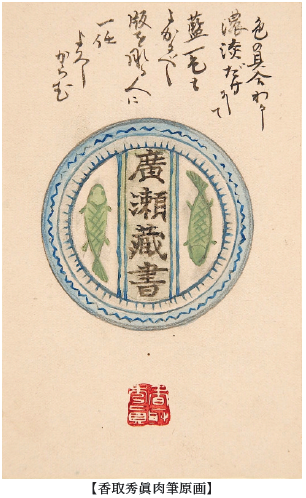 色の具合わ
濃淡だけにて
藍一色も
よかるべし
版を彫る人に
一任
よろし
からむ
廣瀬藏書
【香取秀眞肉筆原画】